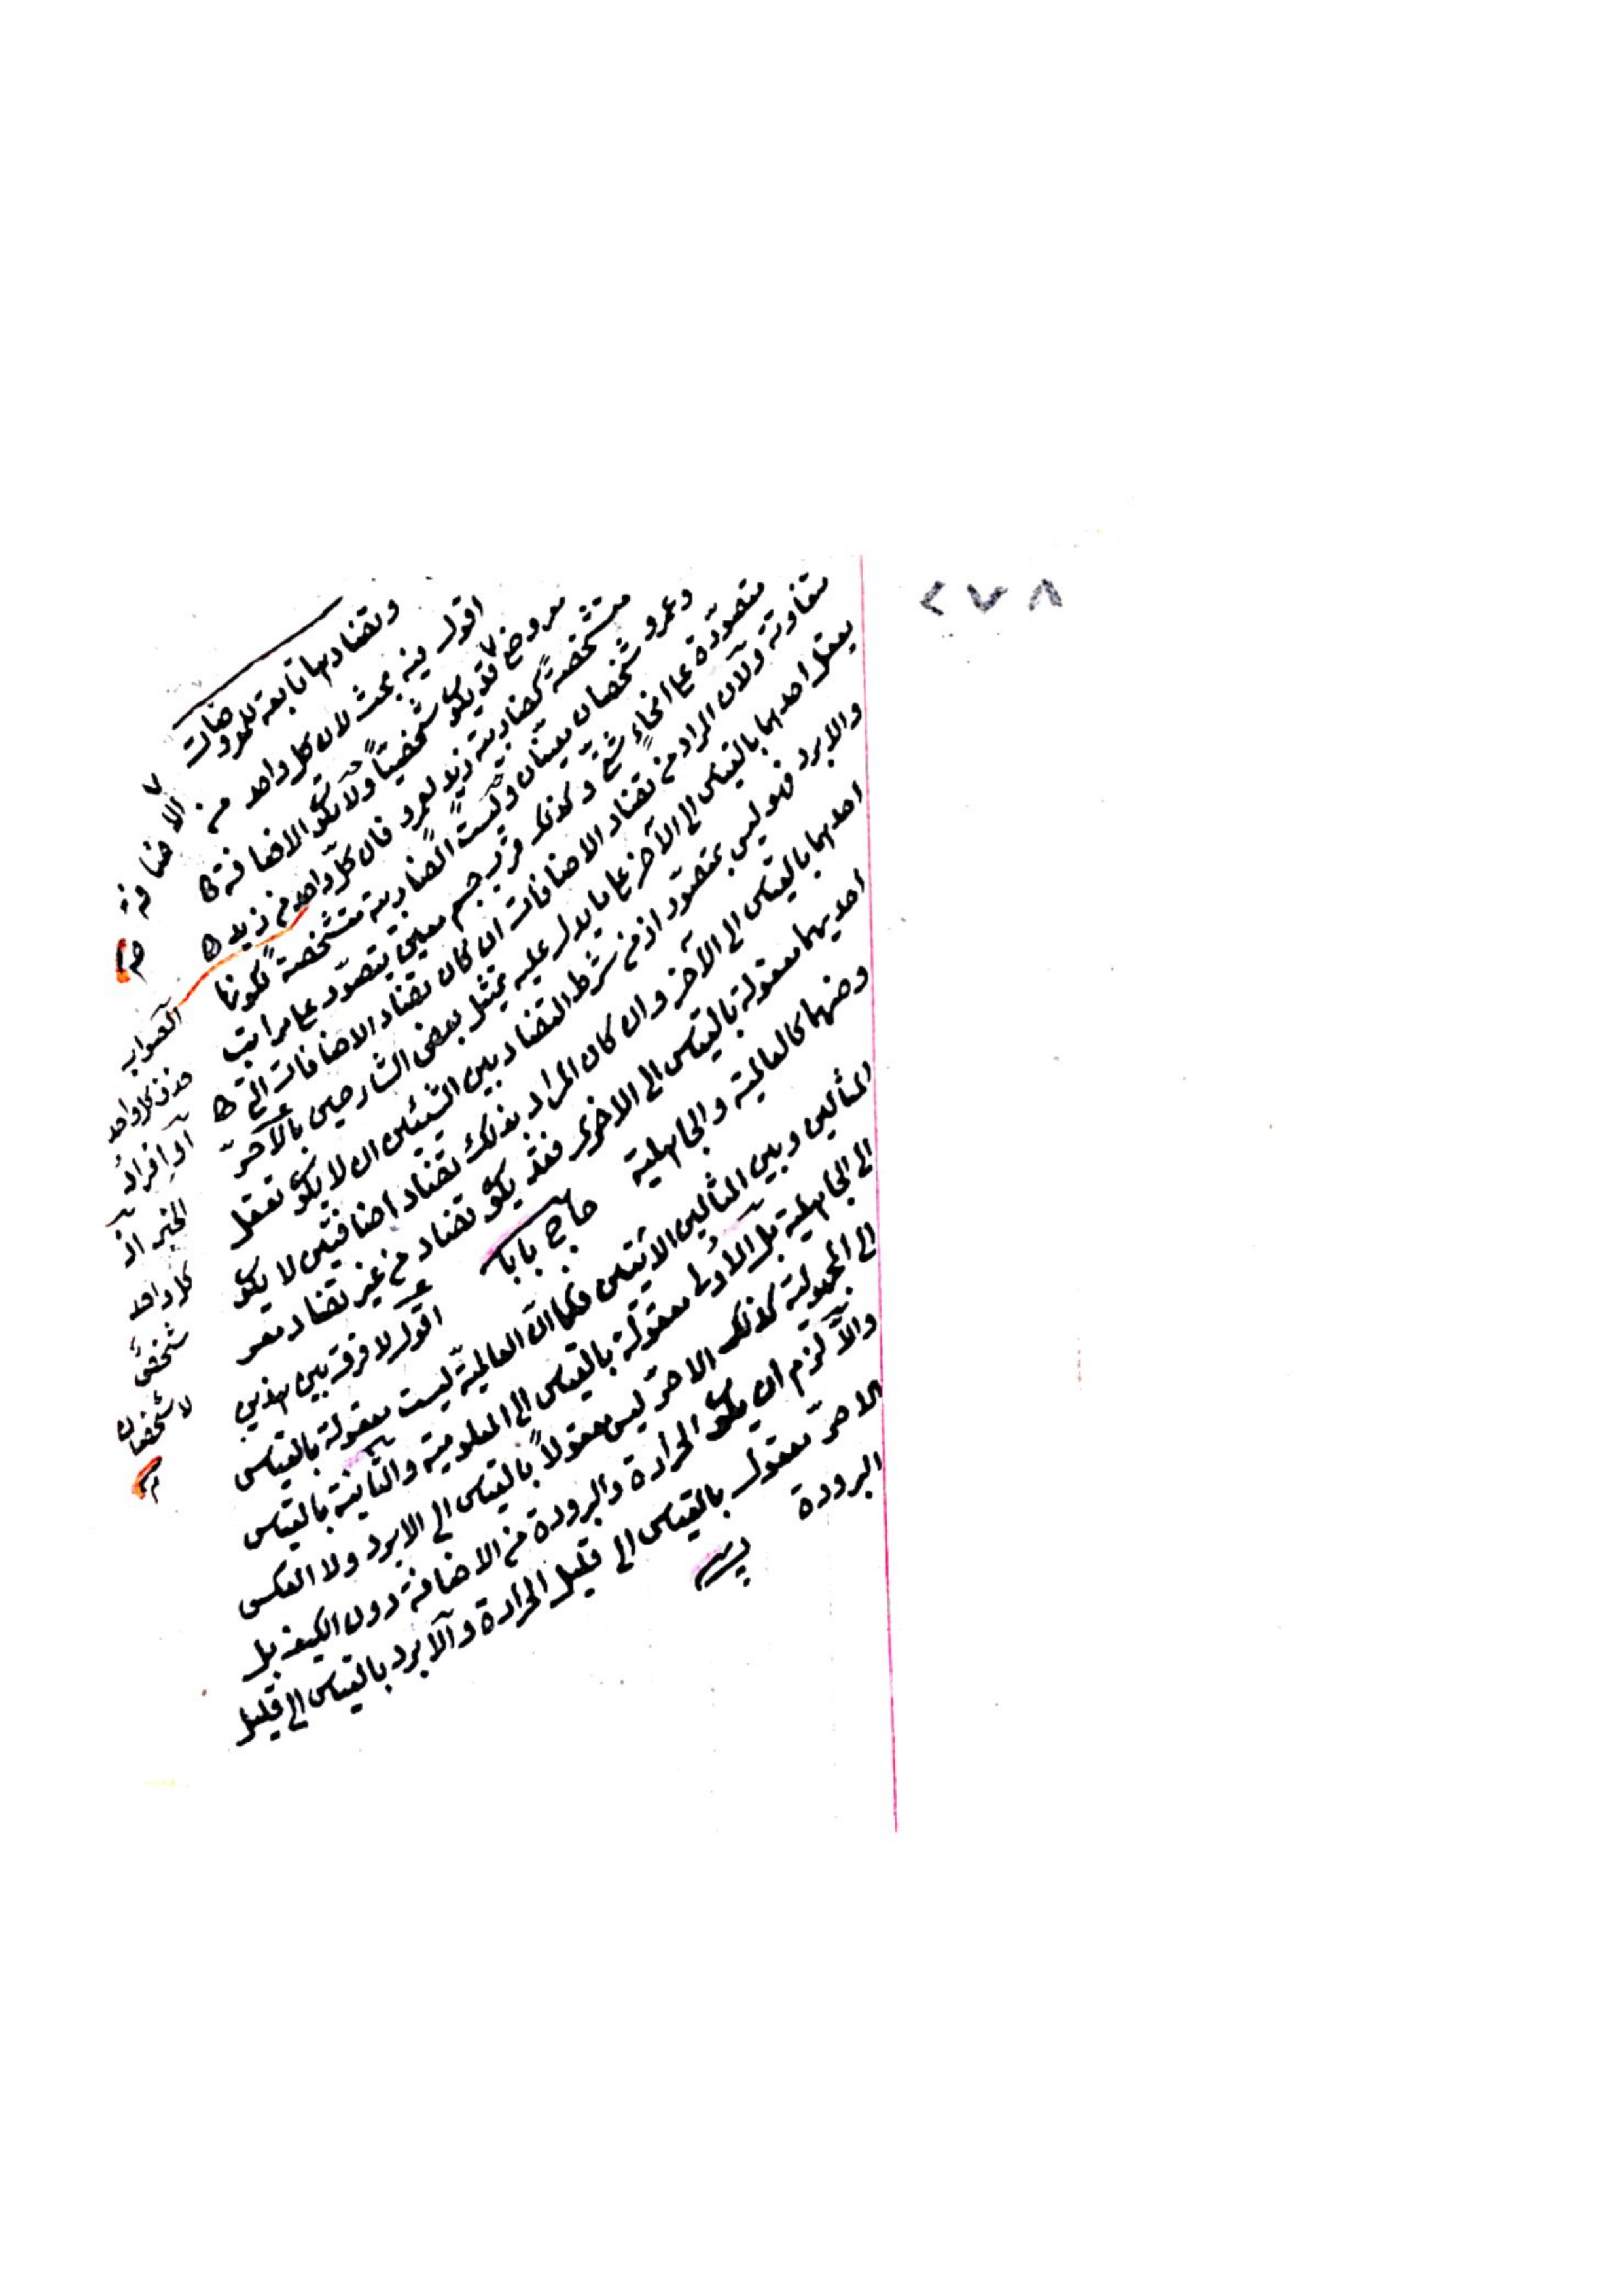 ٢٧٨
وتضادها تابعة للمعروضات
اقول فيه بحث لان كل واحد من الاضافة
معروض قد يكو شخصيًا ولا تكو الاضافة
متشخصة كضاربية زيد لعمرو فان كل واحد من زيد
وعمرو شخصان معينان وليست الضاربية متشخصة لكونها
متصورة على انحاء شتى وكذلك قرب جسم معين يتصور على مراتب
متفاوتة ولان المراد من تضاد الاضافات ان كان تضاد الاضافات التي
يعقل احديها بالقياس الى الآخر على ما يدل عليه تمثيل بعض الشارحين بالاحرّ
والابرد فهو ليس بمتصور اذ من شرط التضاد بين الشيئين ان لا يكو تعقل
احدهما بالقياس الى الآخر وان كان المراد بذلك تضاد اضافتين لا يكو
احديهما معقولة بالقياس الى الاخرى فقد يكو تضاد من غير تضاد معر
وضهما كالعالمية والجاهلية حاج بابا
اقول لا فرق بين هذين
المثالين وبين المثالين الاتيين فكما ان العالمية ليست معقولة بالقياس
الى الجاهلية بل الاولى معقولة بالقياس الى المعلومية والثانية بالقياس
الى المجهولية كذلك الاحرّ ليس معقولاً بالقياس الى الابرد ولا العكس
والا لزم ان يكو الحرارة والبرودة من الاضافة دون الكيف بل
الاحرّ معقول بالقياس الى قليل الحرارة والابرد بالقياس الى قليل
البرودة
الصواب
حذف كل واحد
او افراد
الخبر اذ
كل واحد
شخص
لا شخصان
م